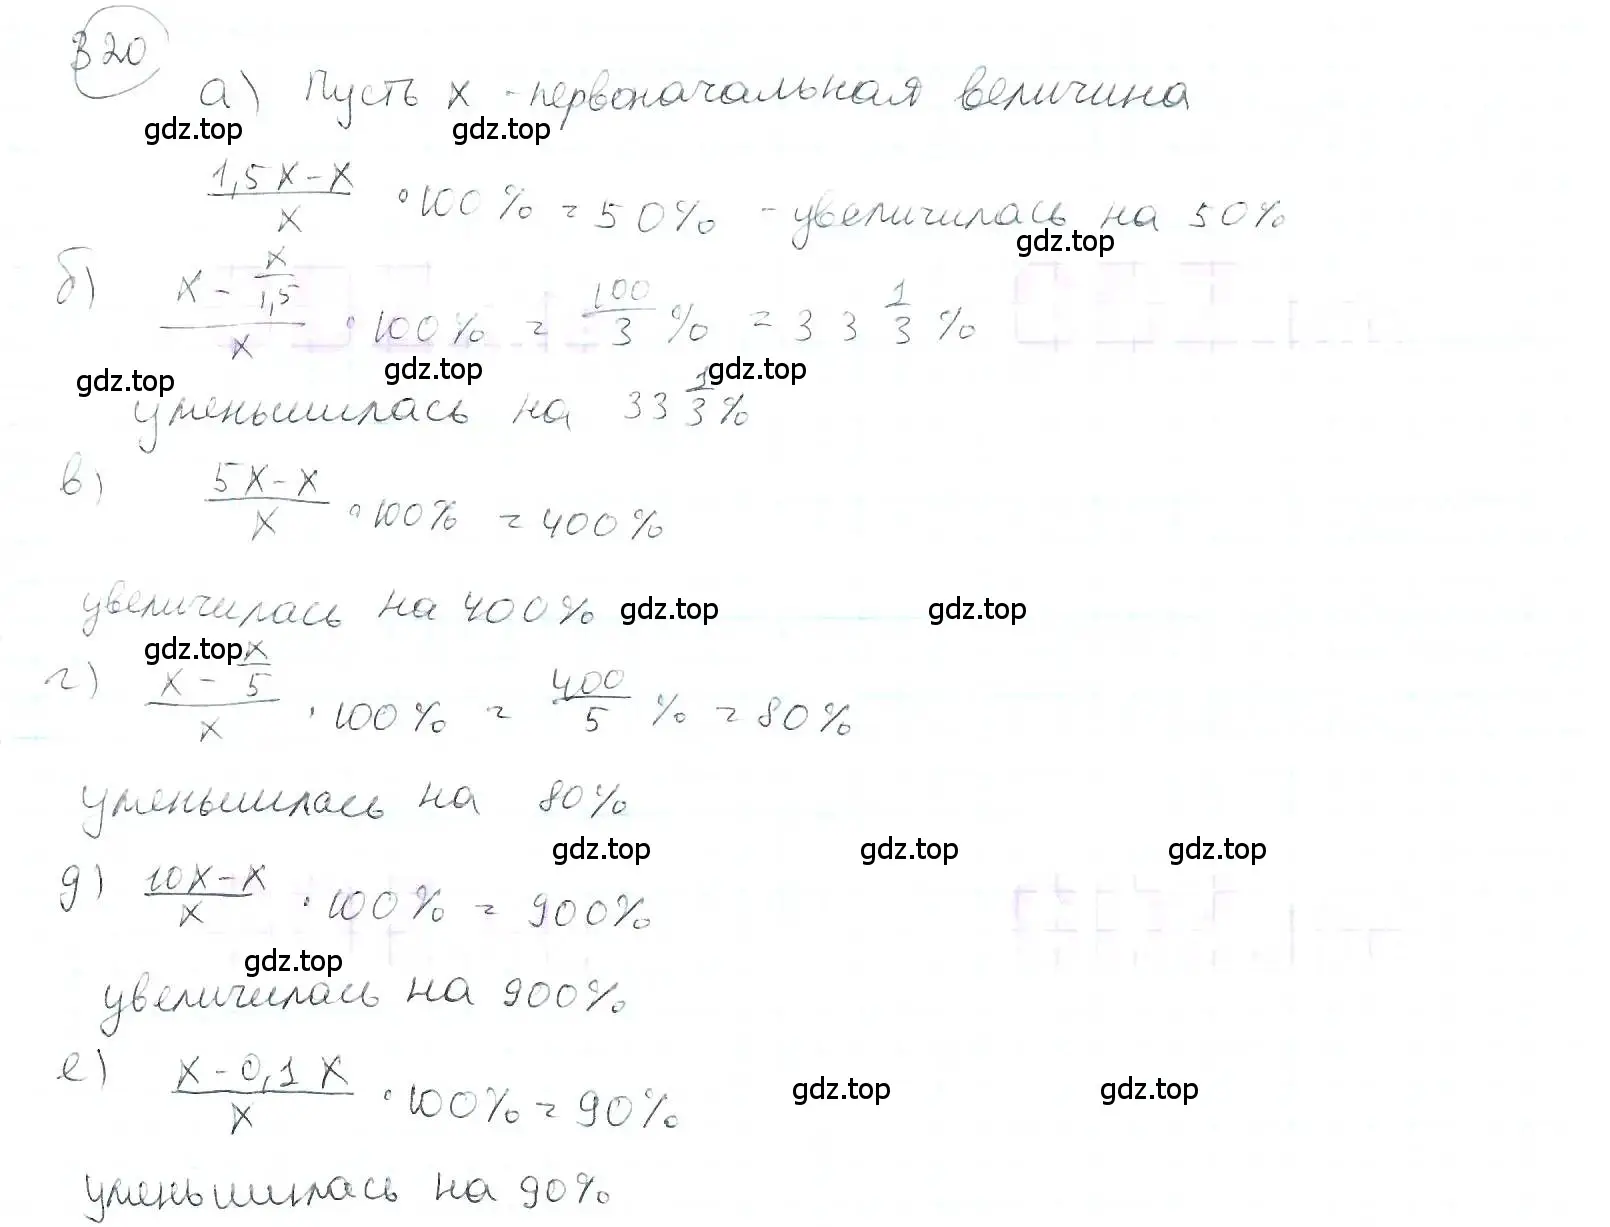 320
а) Пусть x - первоначальная величина
gdz.top gdz.top
(1,5x-x)/x · 100% = 50% - увеличилась на 50%
gdz.top
б) (x - x/1,5)/x · 100% = 100/3 % = 33 1/3 %
gdz.top gdz.top gdz.top
уменьшилась на 33 1/3 %
в) (5x-x)/x · 100% = 400%
увеличилась на 400% gdz.top gdz.top
gdz.top
г) (x - x/5)/x · 100% = 400/5 % = 80%
уменьшилась на 80%
gdz.top gdz.top gdz.top
д) (10x-x)/x · 100% = 900%
gdz.top
увеличилась на 900%
е) (x-0,1x)/x · 100% = 90%
gdz.top gdz.top
уменьшилась на 90%